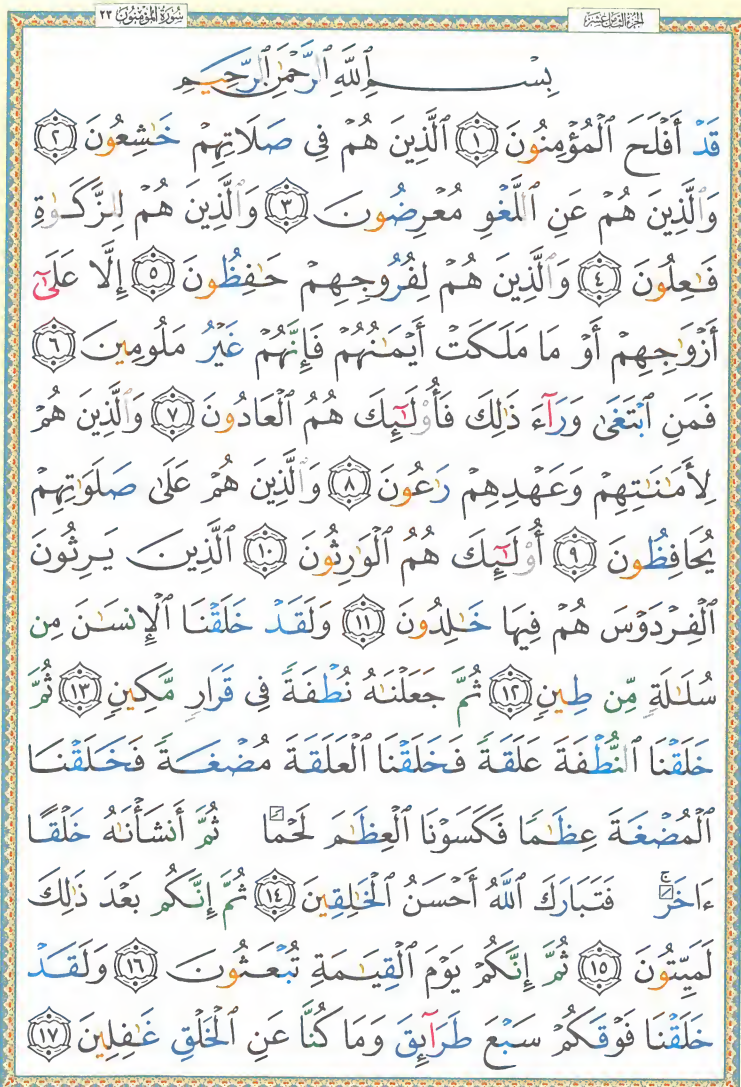 سُورَةُ المُؤْمِنُونَ ٢٣
الجُزْءُ الثَّامِنَ عَشَرَ
بِسْمِ ٱللَّهِ ٱلرَّحْمَٰنِ ٱلرَّحِيمِ
قَدْ أَفْلَحَ ٱلْمُؤْمِنُونَ ١ ٱلَّذِينَ هُمْ فِى صَلَاتِهِمْ خَٰشِعُونَ ٢
وَٱلَّذِينَ هُمْ عَنِ ٱللَّغْوِ مُعْرِضُونَ ٣ وَٱلَّذِينَ هُمْ لِلزَّكَوٰةِ
فَٰعِلُونَ ٤ وَٱلَّذِينَ هُمْ لِفُرُوجِهِمْ حَٰفِظُونَ ٥ إِلَّا عَلَىٰٓ
أَزْوَٰجِهِمْ أَوْ مَا مَلَكَتْ أَيْمَٰنُهُمْ فَإِنَّهُمْ غَيْرُ مَلُومِينَ ٦
فَمَنِ ٱبْتَغَىٰ وَرَآءَ ذَٰلِكَ فَأُو۟لَٰٓئِكَ هُمُ ٱلْعَادُونَ ٧ وَٱلَّذِينَ هُمْ
لِأَمَٰنَٰتِهِمْ وَعَهْدِهِمْ رَٰعُونَ ٨ وَٱلَّذِينَ هُمْ عَلَىٰ صَلَوَٰتِهِمْ
يُحَافِظُونَ ٩ أُو۟لَٰٓئِكَ هُمُ ٱلْوَٰرِثُونَ ١٠ ٱلَّذِينَ يَرِثُونَ
ٱلْفِرْدَوْسَ هُمْ فِيهَا خَٰلِدُونَ ١١ وَلَقَدْ خَلَقْنَا ٱلْإِنسَٰنَ مِن
سُلَٰلَةٍ مِّن طِينٍ ١٢ ثُمَّ جَعَلْنَٰهُ نُطْفَةً فِى قَرَارٍ مَّكِينٍ ١٣ ثُمَّ
خَلَقْنَا ٱلنُّطْفَةَ عَلَقَةً فَخَلَقْنَا ٱلْعَلَقَةَ مُضْغَةً فَخَلَقْنَا
ٱلْمُضْغَةَ عِظَٰمًا فَكَسَوْنَا ٱلْعِظَٰمَ لَحْمًا ثُمَّ أَنشَأْنَٰهُ خَلْقًا
ءَاخَرَ ۚ فَتَبَارَكَ ٱللَّهُ أَحْسَنُ ٱلْخَٰلِقِينَ ١٤ ثُمَّ إِنَّكُم بَعْدَ ذَٰلِكَ
لَمَيِّتُونَ ١٥ ثُمَّ إِنَّكُمْ يَوْمَ ٱلْقِيَٰمَةِ تُبْعَثُونَ ١٦ وَلَقَدْ
خَلَقْنَا فَوْقَكُمْ سَبْعَ طَرَآئِقَ وَمَا كُنَّا عَنِ ٱلْخَلْقِ غَٰفِلِينَ ١٧